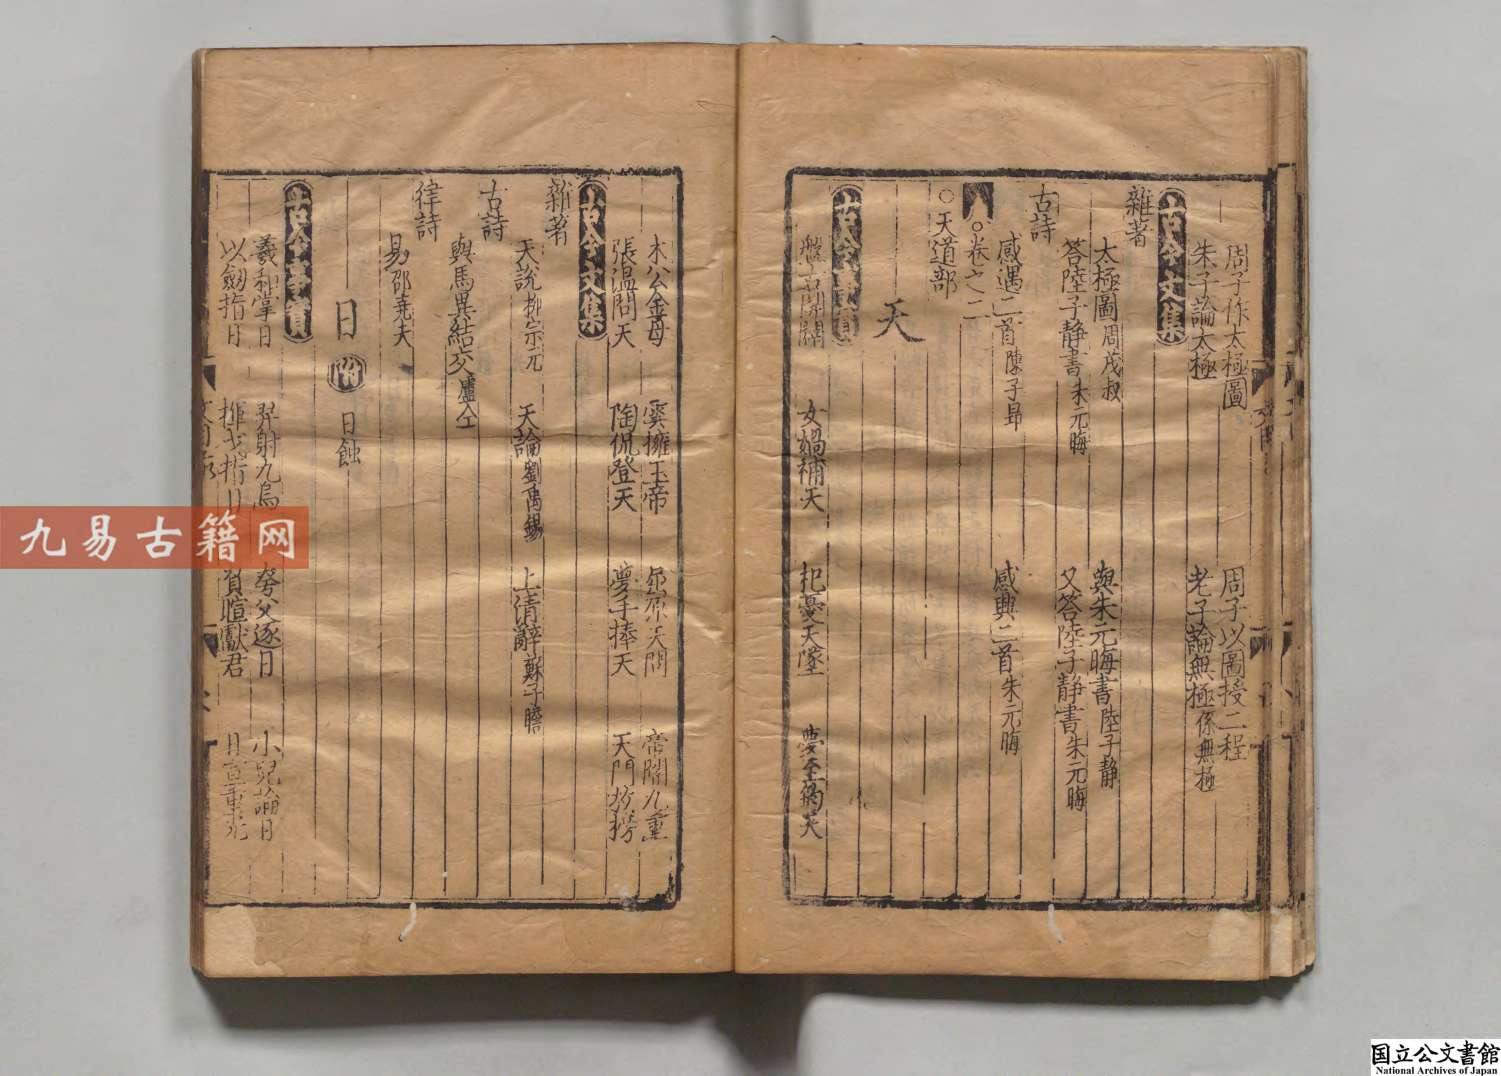 周子作太極圖 周子以圖授二程
朱子論太極 老子論無極 係無極
古今文集
雜著
太極圖 周茂叔 與朱元晦書 陸子静
答陸子静書 朱元晦 又答陸子静書 朱元晦
古詩
感遇二首 陳子昂 感興二首 朱元晦
○卷之二
○天道部
天
古今事實
盤古開闢 女媧補天 杞憂天墜
木公金母 翼擁玉帝 屈原天問 帝閽九重
張温問天 陶侃登天 夢手捧天 天門放榜
古今文集
雜著
天說 柳宗元 天論 劉禹錫 上清辭 蘇子瞻
古詩
與馬異結交 盧仝
律詩
易 邵堯夫
日 附 日蝕
古今事實
羲和掌日 羿射九烏 夸父逐日 小兒論日
以劔指日 揮戈指日 負暄獻君
九易古籍网
国立公文書館
National Archives of Japan